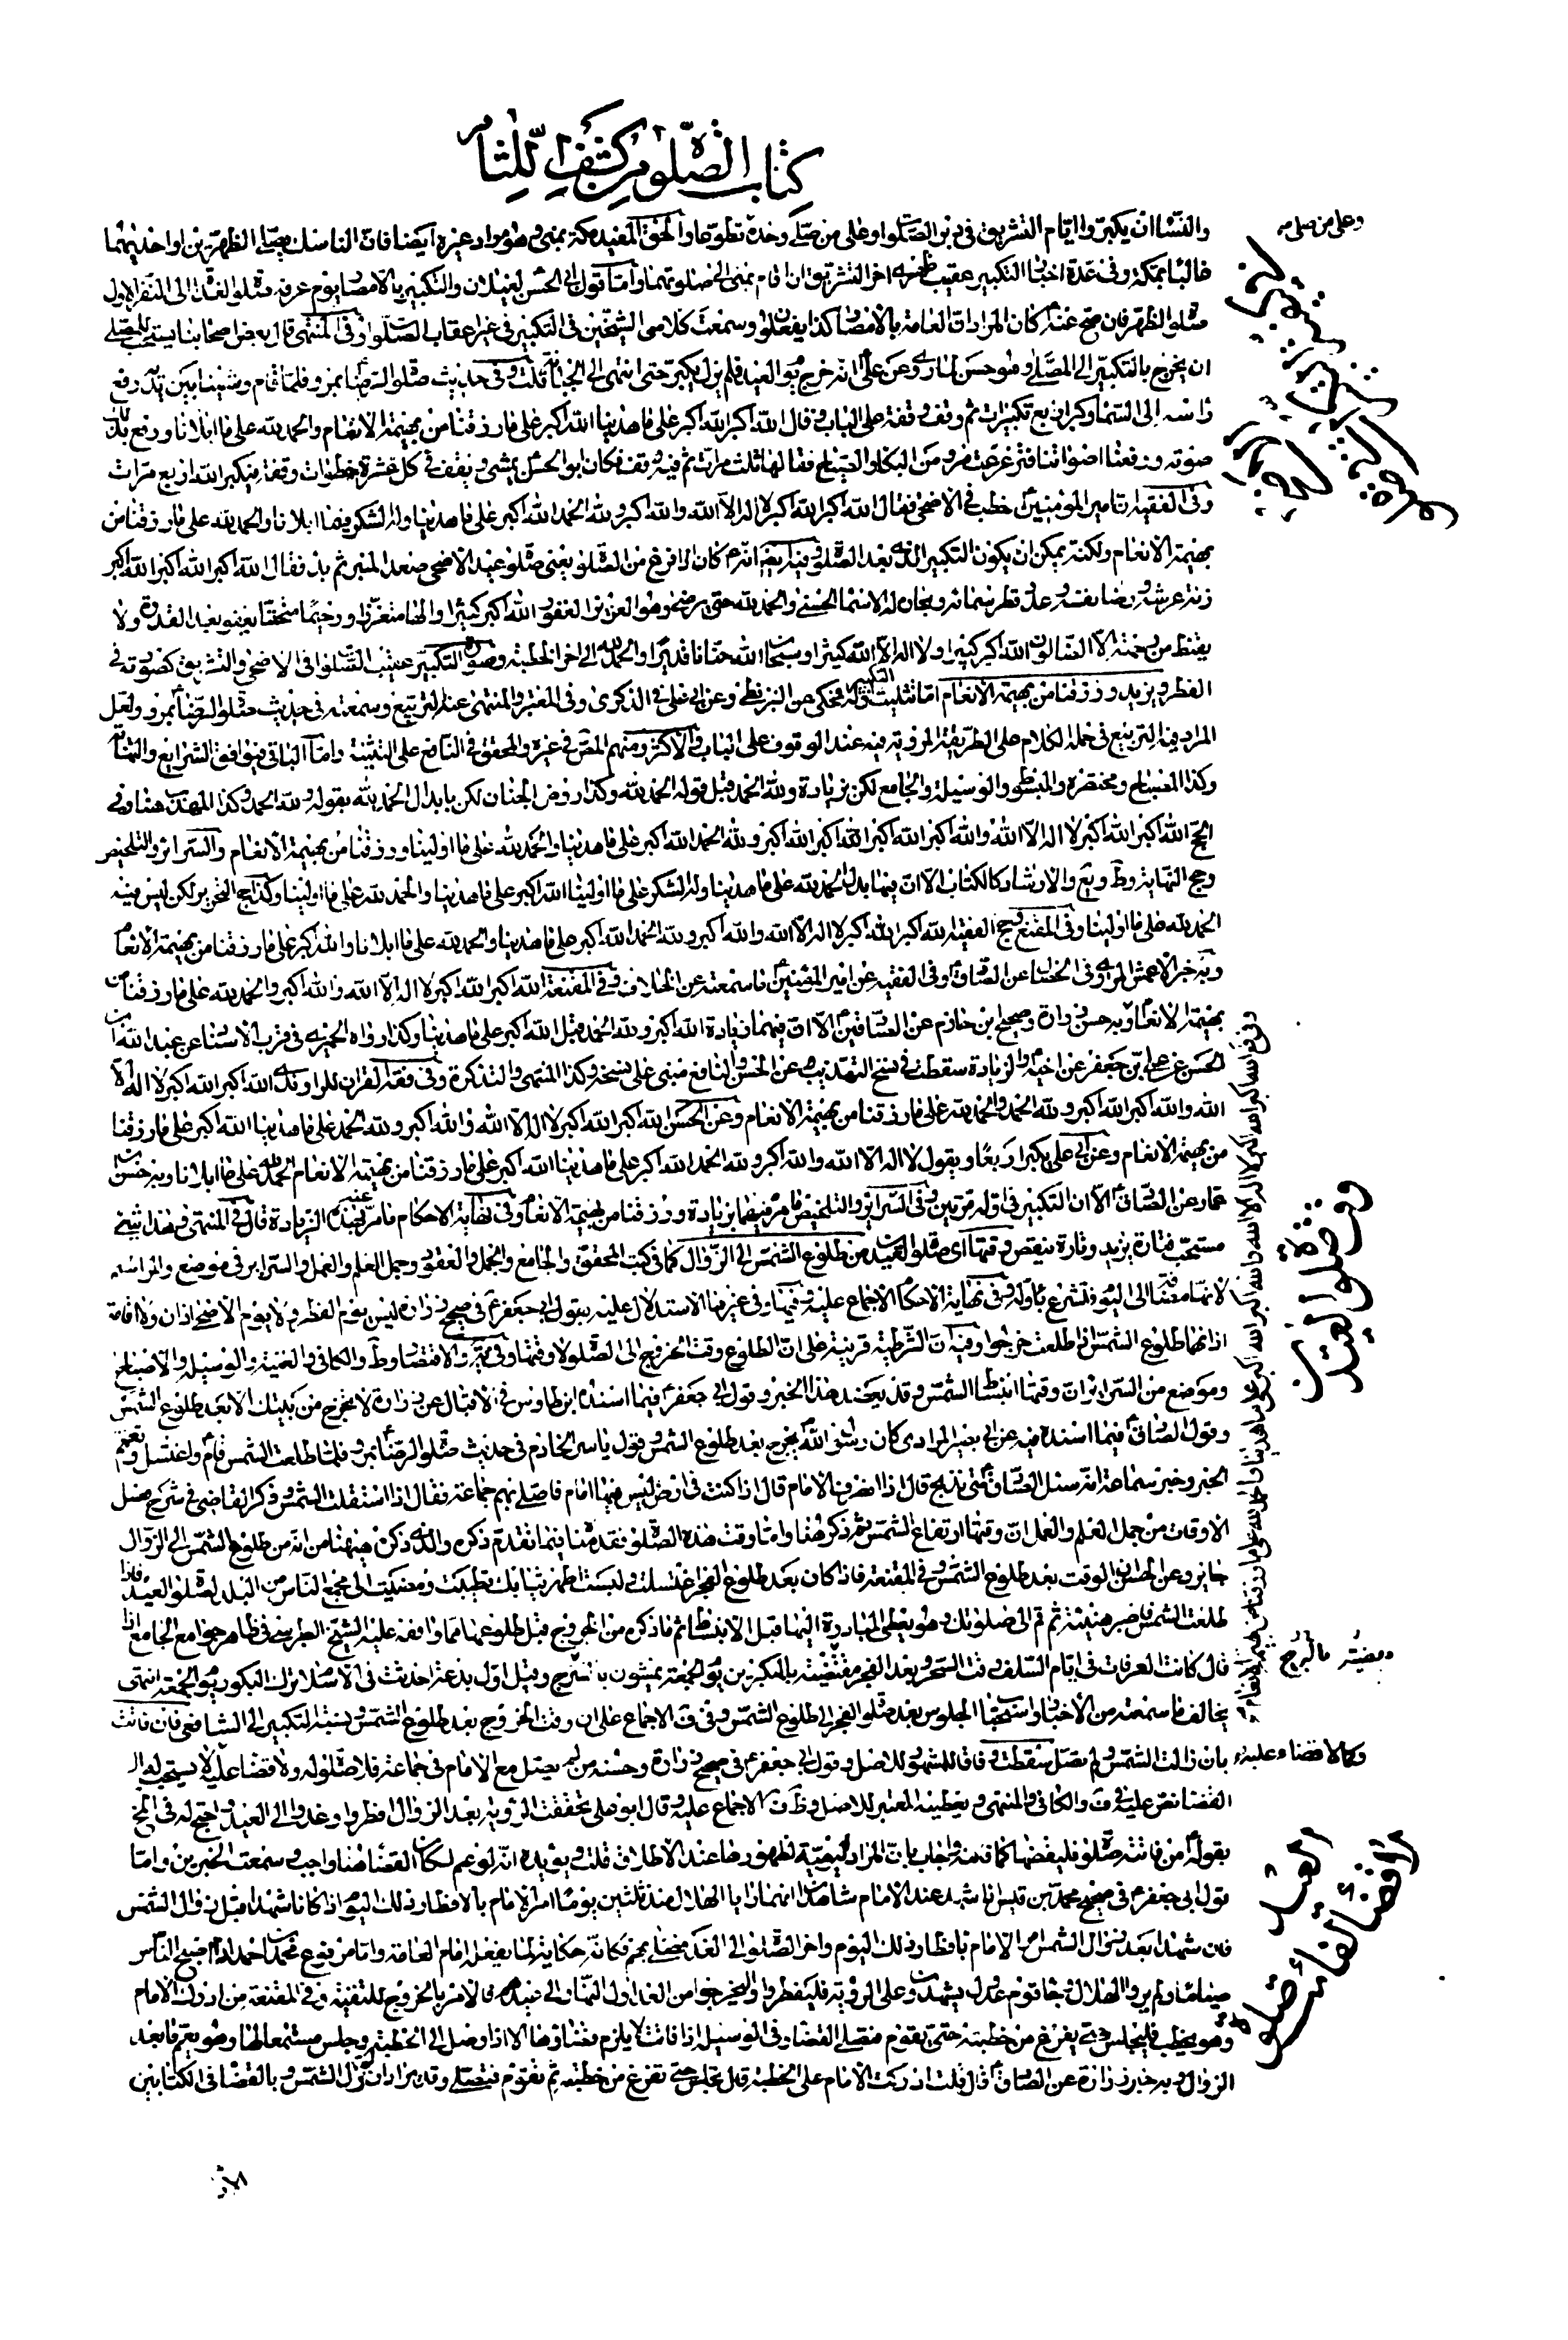 كتاب الصلوة من كشف اللثام
والنساء ان يكبروا ايام التشريق في دبر الصلوات وعلى من صلى وحده تطوعا والحق المفيد مكة بمنى وهو مراد غيره ايضا فان الناسك يصلي الظهرين او احديهما
غالبا بمكة وفي عدة اخبار التكبير عقيب اخر التشريق ان اقام بمنى الى صلوتهما واما قول ابي الحسن والتكبير بالامصار يوم عرفة صلوة الغداة الى النفر الاول
صلوة الظهر فان صح عنه كان المراد ان العامة بالامصار كذا يفعلون وسمعت كلامي الشيخين في التكبير في غير اعقاب الصلوات وفي المنتهى قال بعض اصحابنا يستحب للمصلي
ان يخرج بالتكبير الى المصلى وهو حسن لما روي عن علي انه خرج يوم العيد فلم يزل يكبر حتى انتهى الى الجبانة قلت وفي حديث صلوة الرضا بمرو فلما قام ومشينا بين يديه رفع
راسه الى السماء وكبر اربع تكبيرات ثم وقف وقفة على الباب وقال الله اكبر الله اكبر على ما هدينا الله اكبر على ما رزقنا من بهيمة الانعام والحمد لله على ما ابلانا ورفع بذلك
صوته ورفعنا اصواتنا فتزعزعت مرو من البكاء والصياح فقالها ثلث مرات فكان ابو الحسن يمشي ويقف في كل عشرة خطوات وقفة فيكبر الله اربع مرات
وفي الفقيه ان امير المؤمنين خطب في الاضحى فقال الله اكبر الله اكبر لا اله الا الله والله اكبر ولله الحمد الله اكبر على ما هدينا وله الشكر فيما ابلانا والحمد لله على ما رزقنا من
بهيمة الانعام ولكنه يمكن ان يكون التكبير الذي بعد الصلوة وفيه ايضا انه كان اذا فرغ من الصلوة يعني صلوة عيد الاضحى صعد المنبر ثم بدء فقال الله اكبر الله اكبر الله اكبر
زنة عرشه ورضا نفسه وعدد قطر سمائه وبحاره له الاسماء الحسنى والحمد لله حتى يرضى وهو العزيز الغفور الله اكبر كبيرا والها متعززا ورحيما متحننا يعفو بعد القدرة ولا
يقنط من رحمته الا الضالون الله اكبر كبيرا ولا اله الا الله كثيرا وسبحان الله حنانا قديرا والحمد لله الى اخر الخطبة وصورة التكبير عقيب الصلوات في الاضحى والتشريق كصورته في
الفطر ويزيد ورزقنا من بهيمة الانعام اما تثليث التكبير اوله فمحكي عن البزنطي وعن ابي علي في الذكرى وفي المعتبر والمنتهى عنه التربيع وسمعته في حديث صلوة الرضا بمرو ولعل
المراد فيه التربيع في خلال الكلام على الطريقة المروية فيه عند الوقوف على الباب والاكثر ومنهم المصنف في غيره والمحقق في النافع على التثنية واما الباقي فيوافق الشرايع والنهاية
وكذا المصباح ومختصره والمبسوط والوسيلة والجامع لكن بزيادة ولله الحمد قبل قوله الحمد لله وكذا روض الجنان لكن بابدال الحمد لله بقوله ولله الحمد وكذا المهذب هنا وفي
الحج الله اكبر الله اكبر لا اله الا الله والله اكبر الله اكبر الله اكبر الله اكبر ولله الحمد الله اكبر على ما هدينا والحمد لله على ما اولينا ورزقنا من بهيمة الانعام والسرائر والتلخيص
وحج النهاية وط ويع والارشاد كالكتاب الا ان فيها بدل الحمد لله على ما هدينا وله الشكر على ما اولينا الله اكبر على ما هدينا والحمد لله على ما اولينا وكذا حج التحرير لكن ليس فيه
الحمد لله على ما اولينا وفي المقنع وحج الفقيه الله اكبر الله اكبر لا اله الا الله والله اكبر ولله الحمد الله اكبر على ما هدينا والحمد لله على ما ابلانا والله اكبر على ما رزقنا من بهيمة الانعام
وبه خبر الاعمش المروي في الخصال عن الصادق وفي الفقيه عن امير المؤمنين ما سمعته عن الخلاف وفي المقنعة الله اكبر الله اكبر لا اله الا الله والله اكبر والحمد لله على ما رزقنا من
بهيمة الانعام وبه حسن زرارة وصحيح ابن حازم عن الصادقين الا ان فيهما زيادة الله اكبر ولله الحمد قبل الله اكبر على ما هدينا وكذا رواه الحميري في قرب الاسناد عن عبد الله بن
الحسن عن علي بن جعفر عن اخيه والزيادة سقطت في نسخ التهذيب عن الحسن والنافع مبني على نسخه وكذا المنتهى والتذكرة وفي فقه القران للراوندي الله اكبر الله اكبر لا اله الا
الله والله اكبر الله اكبر ولله الحمد والحمد لله على ما رزقنا من بهيمة الانعام وعن الحسن الله اكبر الله اكبر لا اله الا الله والله اكبر ولله الحمد على ما هدينا الله اكبر على ما رزقنا
من بهيمة الانعام وعن ابي علي يكبر اربعا ويقول لا اله الا الله والله اكبر ولله الحمد الله اكبر على ما هدينا الله اكبر على ما رزقنا من بهيمة الانعام والحمد لله على ما ابلانا وبه حسن
عمار عن الصادق الا ان التكبير في اوله مرتين وفي السرائر والتلخيص ما مر فيهما بزيادة ورزقنا من بهيمة الانعام وفي نهاية الاحكام ما مر عنه بهذه الزيادة قال في المنتهى وهذا شيء
مستحب فتارة يزيد وتارة ينقص وقتها اي صلوة العيد من طلوع الشمس الى الزوال كما في كتب المحقق والجامع والجمل والعقود وجمل العلم والعمل والسرائر في موضع والمراسم
لانها مضافة الى اليوم فتشرع باوله وفي نهاية الاحكام الاجماع عليه وفيها وفي غيرها الاستدلال عليه بقول ابي جعفر في صحيح زرارة ليس يوم الفطر ولا يوم الاضحى اذان ولا اقامة
اذانهما طلوع الشمس اذا طلعت خرجوا وفيه ان الشرطية قرينة على ان الطلوع وقت الخروج الى الصلوة لا وقتها وفي والاقتصاد وط والكافي والغنية والوسيلة والاصباح
وموضع من السرائر ان وقتها انبساط الشمس وقد يعضده هذا الخبر وقول ابي جعفر فيما اسنده ابن طاوس في الاقبال عن زرارة لا تخرج من بيتك الا بعد طلوع الشمس
وقول الصادق فيما اسنده فيه عن ابي بصير المرادي كان رسول الله يخرج بعد طلوع الشمس وقول ياسر الخادم في حديث صلوة الرضا بمرو فلما طلعت الشمس قام واغتسل وتعمم
الخبر وخبر سماعة انه سئل الصادق متى نذبح قال اذا انصرف الامام قال اذا كنت في ارض ليس فيها امام فاصلي بهم جماعة فقال اذا استقلت الشمس وذكر القاضي في شرح فصل
الاوقات من جمل العلم والعمل ان وقتها ارتفاع الشمس ثم ذكر هنا واما وقت هذه الصلوة فقد قدمنا فيما تقدم ذكره والذي ذكره هيهنا من انه من طلوع الشمس الى الزوال
جايز وعن الحسن الوقت بعد طلوع الشمس وفي المقنعة فاذا كان بعد طلوع الفجر اغتسلت ولبست اطهر ثيابك وتطيبت ومضيت الى مجمع الناس من البلد لصلوة العيد فاذا
طلعت الشمس فاصبر هنيئة ثم قم الى صلوتك وهو يعطي المبادرة اليها قبل الانبساط ثم ما ذكره من الخروج قبل طلوعها مما وافقه عليه الشيخ الطبرسي في ظاهر جوامع الجامع اذا
قال كانت الطرقات في ايام السلف وقت السحر وبعد الفجر مغتصة بالمبكرين يوم الجمعة يمشون بالسرج وقيل اول بدعة احدثت في الاسلام ترك البكور يوم الجمعة انتهى
يخالف ما سمعته من الاخبار واستحباب الجلوس بعد صلوة الفجر الى طلوع الشمس وفي ف الاجماع على ان وقت الخروج بعد طلوع الشمس ونسبة التكبير الى الشافعي فان فاتت
بان زالت الشمس ولم تصل سقطت وفاقا للمشهور للاصل وقول ابي جعفر في صحيح زرارة وحسنه من لم يصل مع الامام في جماعة فلا صلوة له ولا قضاء عليه لا يستحب له
القضاء نص عليه في ف والكافي والمنتهى ويعطيه المعتبر للاصل وظ ف الاجماع عليه وقال ابو علي تحققت الرؤية بعد الزوال افطروا وغدوا الى العيد واحتج له في الخ
بقوله من فاتته صلوة فليقضها كما فاتته واجاب بان المراد اليومية لظهورها عند الاطلاق قلت ويؤيده انه لو عم لكان القضاء هنا واجبا وسمعت الخبرين واما
قول ابي جعفر في صحيح محمد بن قيس اذا شهد عند الامام شاهدان انهما رايا الهلال منذ ثلثين يوما امر الامام بالافطار ذلك اليوم اذا كانا شهدا قبل زوال الشمس
فان شهدا بعد زوال الشمس امر الامام بافطار ذلك اليوم واخر الصلوة الى الغد فيصلي بهم فكانه حكاية لما يفعل امام العامة واما مرفوع محمد بن احمد اذا اصبح الناس
صياما ولم يروا الهلال وجاء قوم عدول يشهدون على الرؤية فليفطروا وليخرجوا من الغد اول النهار الى عيدهم فالامر بالخروج للتقية وفي المقنعة من ادرك الامام
وهو يخطب فليجلس حتى يفرغ من خطبته حتى يقوم فيصلي القضاء وفي الوسيلة اذا فاتت لا يلزم قضاؤها الا اذا وصل الى الخطبة وجلس مستمعا لها وهو يعم ما بعد
الزوال وبه خبر زرارة عن الصادق قال قلت ادركت الامام على الخطبة قال تجلس حتى تفرغ من خطبته ثم تقوم فتصلي وقد يراد ان لم تزل الشمس وبالقضاء في الكتابين
وعلى من صلى
وقت صلوة العيدين
وكما لا قضاء عليه
لا قضاء لفائت صلوة العيد
الاد